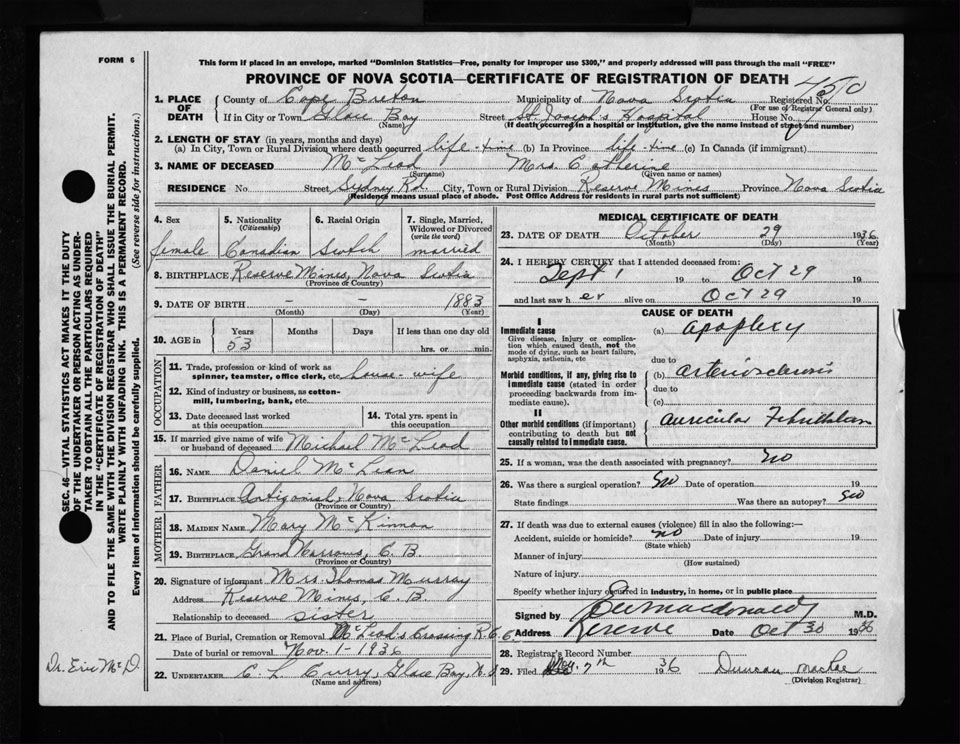 FORM 6
This form if placed in an envelope, marked "Dominion Statistics—Free, penalty for improper use $300," and properly addressed will pass through the mail "FREE"
PROVINCE OF NOVA SCOTIA—CERTIFICATE OF REGISTRATION OF DEATH
1. PLACE OF DEATH
County of Cape Breton Municipality of Nova Scotia Registered No.
(For use of Registrar General only)
If in City or Town Glace Bay Street St. Joseph's Hospital House No.
(Name) (If death occurred in a hospital or institution, give the name instead of street and number)
2. LENGTH OF STAY (in years, months and days)
(a) In City, Town or Rural Division where death occurred life-time (b) In Province life-time (c) In Canada (if immigrant)
3. NAME OF DECEASED McLeod Mrs. Catherine
(Surname) (Given name or names)
RESIDENCE No Street Sydney Rd. City, Town or Rural Division Reserve Mines Province Nova Scotia
(Residence means usual place of abode. Post Office Address for residents in rural parts not sufficient)
4. Sex female
5. Nationality (Citizenship) Canadian
6. Racial Origin Scotch
7. Single, Married, Widowed or Divorced (write the word) married
8. BIRTHPLACE Reserve Mines, Nova Scotia
(Province or Country)
9. DATE OF BIRTH – – 1883
(Month) (Day) (Year)
10. AGE in Years 53 Months Days If less than one day old hrs. or min.
OCCUPATION
11. Trade, profession or kind of work as spinner, teamster, office clerk, etc house-wife
12. Kind of industry or business, as cotton-mill, lumbering, bank, etc.
13. Date deceased last worked at this occupation
14. Total yrs. spent in this occupation
15. If married give name of wife or husband of deceased Michael McLeod
FATHER
16. NAME Daniel McLean
17. BIRTHPLACE Antigonish, Nova Scotia
(Province or Country)
MOTHER
18. MAIDEN NAME Mary McKinnon
19. BIRTHPLACE Grand Narrows, C.B.
(Province or Country)
20. Signature of informant Mrs. Thomas Murray
Address Reserve Mines, C.B.
Relationship to deceased sister
21. Place of Burial, Cremation or Removal McLeod's Crossing
Date of burial or removal Nov. 1-1936
22. UNDERTAKER C. L. Curry, Glace Bay, N.S
(Name and address)
MEDICAL CERTIFICATE OF DEATH
23. DATE OF DEATH October 29 1936
(Month) (Day) (Year)
24. I HEREBY CERTIFY that I attended deceased from:
Sept 1 19 to Oct 29 19
and last saw her alive on Oct 29 19
CAUSE OF DEATH
I
Immediate cause (a) Apoplexy
Give disease, injury or complication which caused death, not the mode of dying, such as heart failure, asphyxia, asthenia, etc
due to
Morbid conditions, if any, giving rise to immediate cause (stated in order proceeding backwards from immediate cause).
(b) arteriosclerosis
due to
(c)
II
Other morbid conditions (if important) contributing to death but not causally related to immediate cause.
auricular Fibrillation
25. If a woman, was the death associated with pregnancy? No
26. Was there a surgical operation? No Date of operation 19
State findings Was there an autopsy? No
27. If death was due to external causes (violence) fill in also the following:—
Accident, suicide or homicide? no Date of injury 19
(State which)
Manner of injury
(How sustained)
Nature of injury
Specify whether injury occurred in industry, in home, or in public place
Signed by Macdonald M.D.
Address Reserve Date Oct 30 1936
28. Registrar's Record Number
29. Filed Nov. 7th 1936 Duncan MacRae
(Division Registrar)
SEC. 46—VITAL STATISTICS ACT MAKES IT THE DUTY OF THE UNDERTAKER OR PERSON ACTING AS UNDERTAKER TO OBTAIN ALL THE PARTICULARS REQUIRED IN THE "CERTIFICATE OF REGISTRATION OF DEATH" AND TO FILE THE SAME WITH THE DIVISION REGISTRAR WHO SHALL ISSUE THE BURIAL PERMIT.
WRITE PLAINLY WITH UNFADING INK. THIS IS A PERMANENT RECORD.
Every item of information should be carefully supplied. (See reverse side for instructions.)